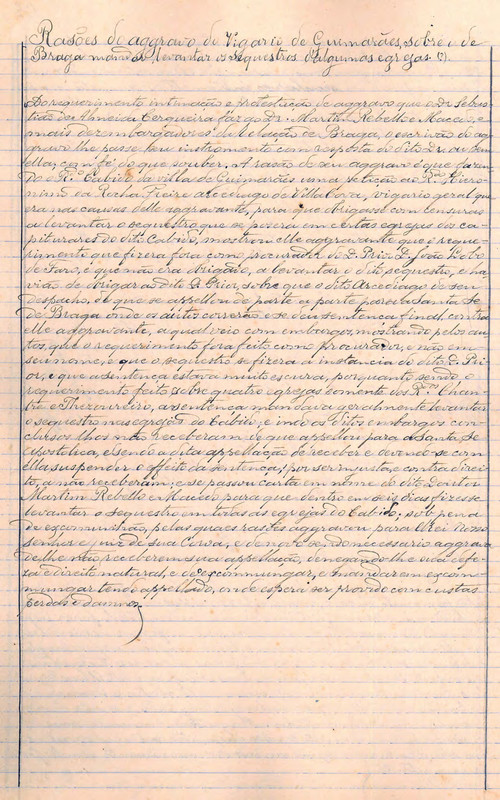 Rasões do aggravo do Vigario de Guimarães, sobre o de
Braga mandar levantar os sequestros d'algumas egrejas. (1).
Do requerimento intimação e protestação de aggravo que o dr. Sebas
tião de Almeida Cerqueira faz ao Dr. Martim Rebello e Macedo, e
mais dezembargadores da relação de Braga, o escrivão do ag
gravo lhe passe seu instromento com resposta do dito Dr. ou sem
ella, com fé do que souber. A rasão do seu aggravo é que
do o R.do Cabido da villa de Guimarães uma petição ao R.do Hiero
nimo da Rocha Freire arcediago de Villa Cova, vigario geral que
era nas causas delle aggravante, para que obrigasse com censuras
a levantar o sequestro que se posera em certas egrejas dos ca
pitulares do dito Cabido, mostrou elle aggravante que o reque
rimento que fizera fora como procurador do D. Prior D. João Lobo
de Faro, e que não era obrigado, a levantar o dito sequestro, e ha
vião de obrigar ao dito D. Prior, sobre que o dito Arcediago deu seu
despacho, de que se appellou de parte a parte para a Santa Sé
de Braga onde os autos correrão e se deu sentença final contra
elle aggravante, a qual veio com embargo, mostrando pelos au
tos, que o requerimento fora feito como procurador, e não em
seu nome, e que o sequestro se fizera a instancia do dito D. Pri
or, e que a sentença estava muito escura, porquanto sendo o
requerimento feito sobre quatro egrejas somente dos R.dos Chan
tre e Thezoureiro, a sentença mandava geralmente levantar
o sequestro nas egrejas do Cabido; e indo os ditos embargos con
clusos lhos não receberam de que appellou para a Santa Sé
Apostolica, e sendo a dita appellação de receber e devendo-se com
ella suspender o effeito da sentença, por ser injusta, e contra direi
to, a não receberam; e se passou carta em nome do dito Doutor
Martim Rebello e Macedo para que dentro em seis dias fizesse
levantar o sequestro em todas as egrejas do Cabido; sob pena
de excommunhão, pelas quaes rasões aggravou para El Rei Nosso
Senhor e juiz de sua Coroa, e de novo sendo necessario aggrava
de lhe não receberem sua appellação, denegando-lhe sua defe
za e direito natural, e de o excommungar, e mandarem excom
mungar tendo appellado, onde espera ser provido com custas
perdas e damnos